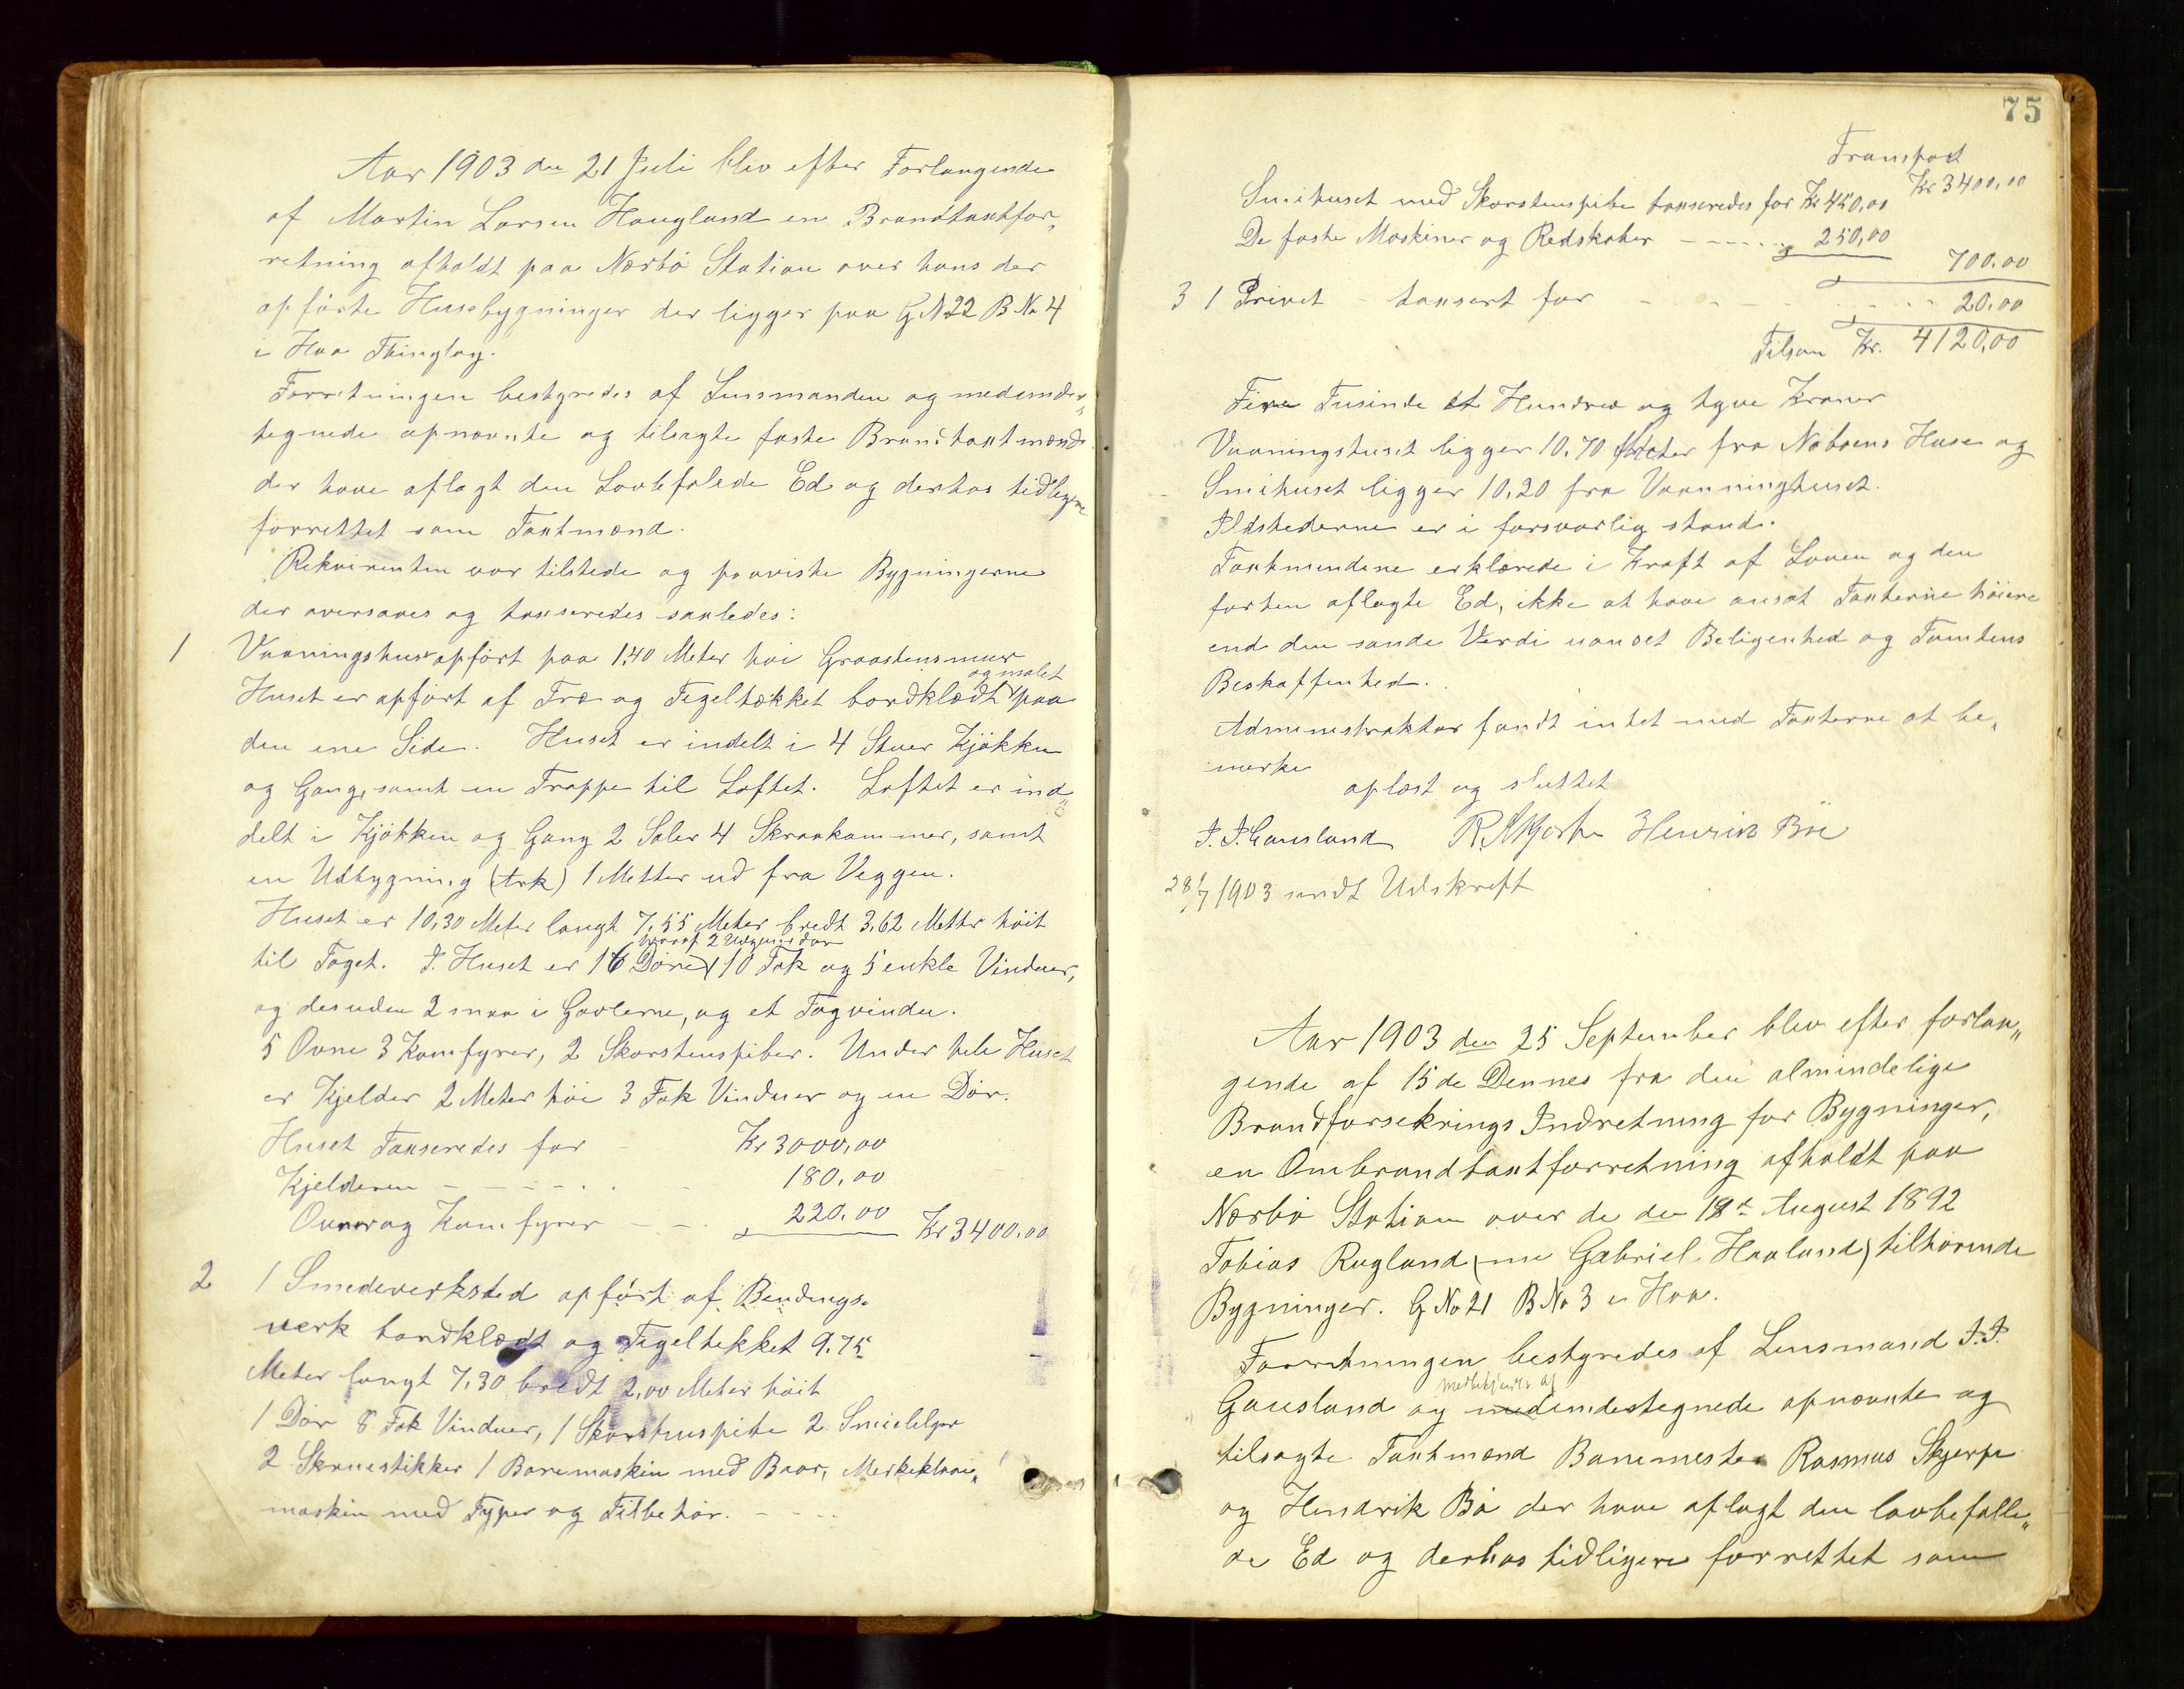 Aar 1903 den 21 Juli blev efter Forlangende
af Martin Larsen Haugland en Brandtaxtfor„
retning afholdt paa Nærbö Station over hans der
opförte Husebygninger der ligger paa G N 22 B No 4
i Haa Thinglag.
Forretningen bestyredes af Lensmanden og medunder„
tegnede opnævnte og tilsagte faste Brandtaxtmænd
der have aflagt den Lovbefalede Ed og derhos tidligere
forrettet som Taxtmænd.
Rekvirenten var tilstede og paaviste Bygningerne
der oversaaes og taxseredes saaledes:
1 Vaaningshus opfört paa 1,40 Meter höi Graastensmur
og malet
Huset er opfört af Træ og Tegeltækket bordklædt paa
den ene Side. Huset er indelt i 4 Stuer Kjökken
og Gang, samt en Trappe til Loftet. Loftet er ind„
delt i Kjökken og Gang 2 Saler 4 Skraakammer, samt
en Udbygning (Ark) 1 Metter ud fra Veggen.
Huset er 10,30 Meter langt 7,55 Meter bredt 3,62 Metter höit
hvoraf 2 Udgangsdør
til Taget. I Huset er 16 Döre 10 Fak og 5 enkle Vinduer,
og desuden 2 smaa i Gavlerne, og et Tagvindu.
5 Ovne 3 Komfyrer, 2 Skorstenspiber. Under hele Huset
er Kjelder 2 Meter höi 3 Fak Vinduer og en Dör.
Huset Taxseredes for - Kr 3000,00
Kjelderen - - - - - . . - 180,00
Ovner og Komfyrer - - . 220.00 Kr 3400.00
2 1 Smedeverksted opfört af Bendings„
verk bordklædt og Tegeltekket 9.75
Meter langt 7,30 bredt 2,00 Meter höit
1 Dör 8 Fak Vinduer, 1 Skorstenspibe 2 Smiebelger
2 Skruestikker 1 Boremaskin med Boor,
maskin med Typer og Tilbehör. - - - -
75
Transport
Kr 3400,00
Smihuset med Skorstenspibe taxseredes for Kr 450,00
De faste Maskiner og Redskaber - - - - - 250,00
700.00
3 1 Privet - taxsert for - - - - 20.00
Tilsam Kr. 4120,00
Fire Tusinde et Hundrede og tyve Kroner
Vaaningshuset ligger 10.70 Meter fra Naboens Huse og
Smihuset ligger 10,20 fra Vaanninghuset.
Ildstederne er i forsvarlig stand.
Taxtmendene erklærede i Kraft af Loven og den
forhen aflagte Ed, ikke at have ansat Taxterne höiere
end den sande Verdi uanset Beligenhed og Tomtens
Beskaffenhed.
Administraktor fandt intet med Taxterne at be„
merke
oplæst og sluttet
J. J. Gausland R. Skjerpe Henrik Böe
28/7 1903 sendt Udskrift
Aar 1903 den 25 September blev efter forlan„
gende af 15 de Dennes fra den almindelige
Brandforsekrings Indretning for Bygninger,
en Ombrandtaxtforretning afholdt paa
Nærbö Station over de den 18de August 1892
Tobias Rugland (nu Gabriel Haaland) tilhörende
Bygninger. G No 21 B No 3 i Haa.
Forretningen bestyredes af Lensmand J. J.
Gausland og medundertegnede opnævnte og
tilsagte Taxtmænd Banemester Rasmus Skjerpe
og Hendrik Bö der have aflagt den lovbefalle„
de Ed og derhos tidligere forrettet som